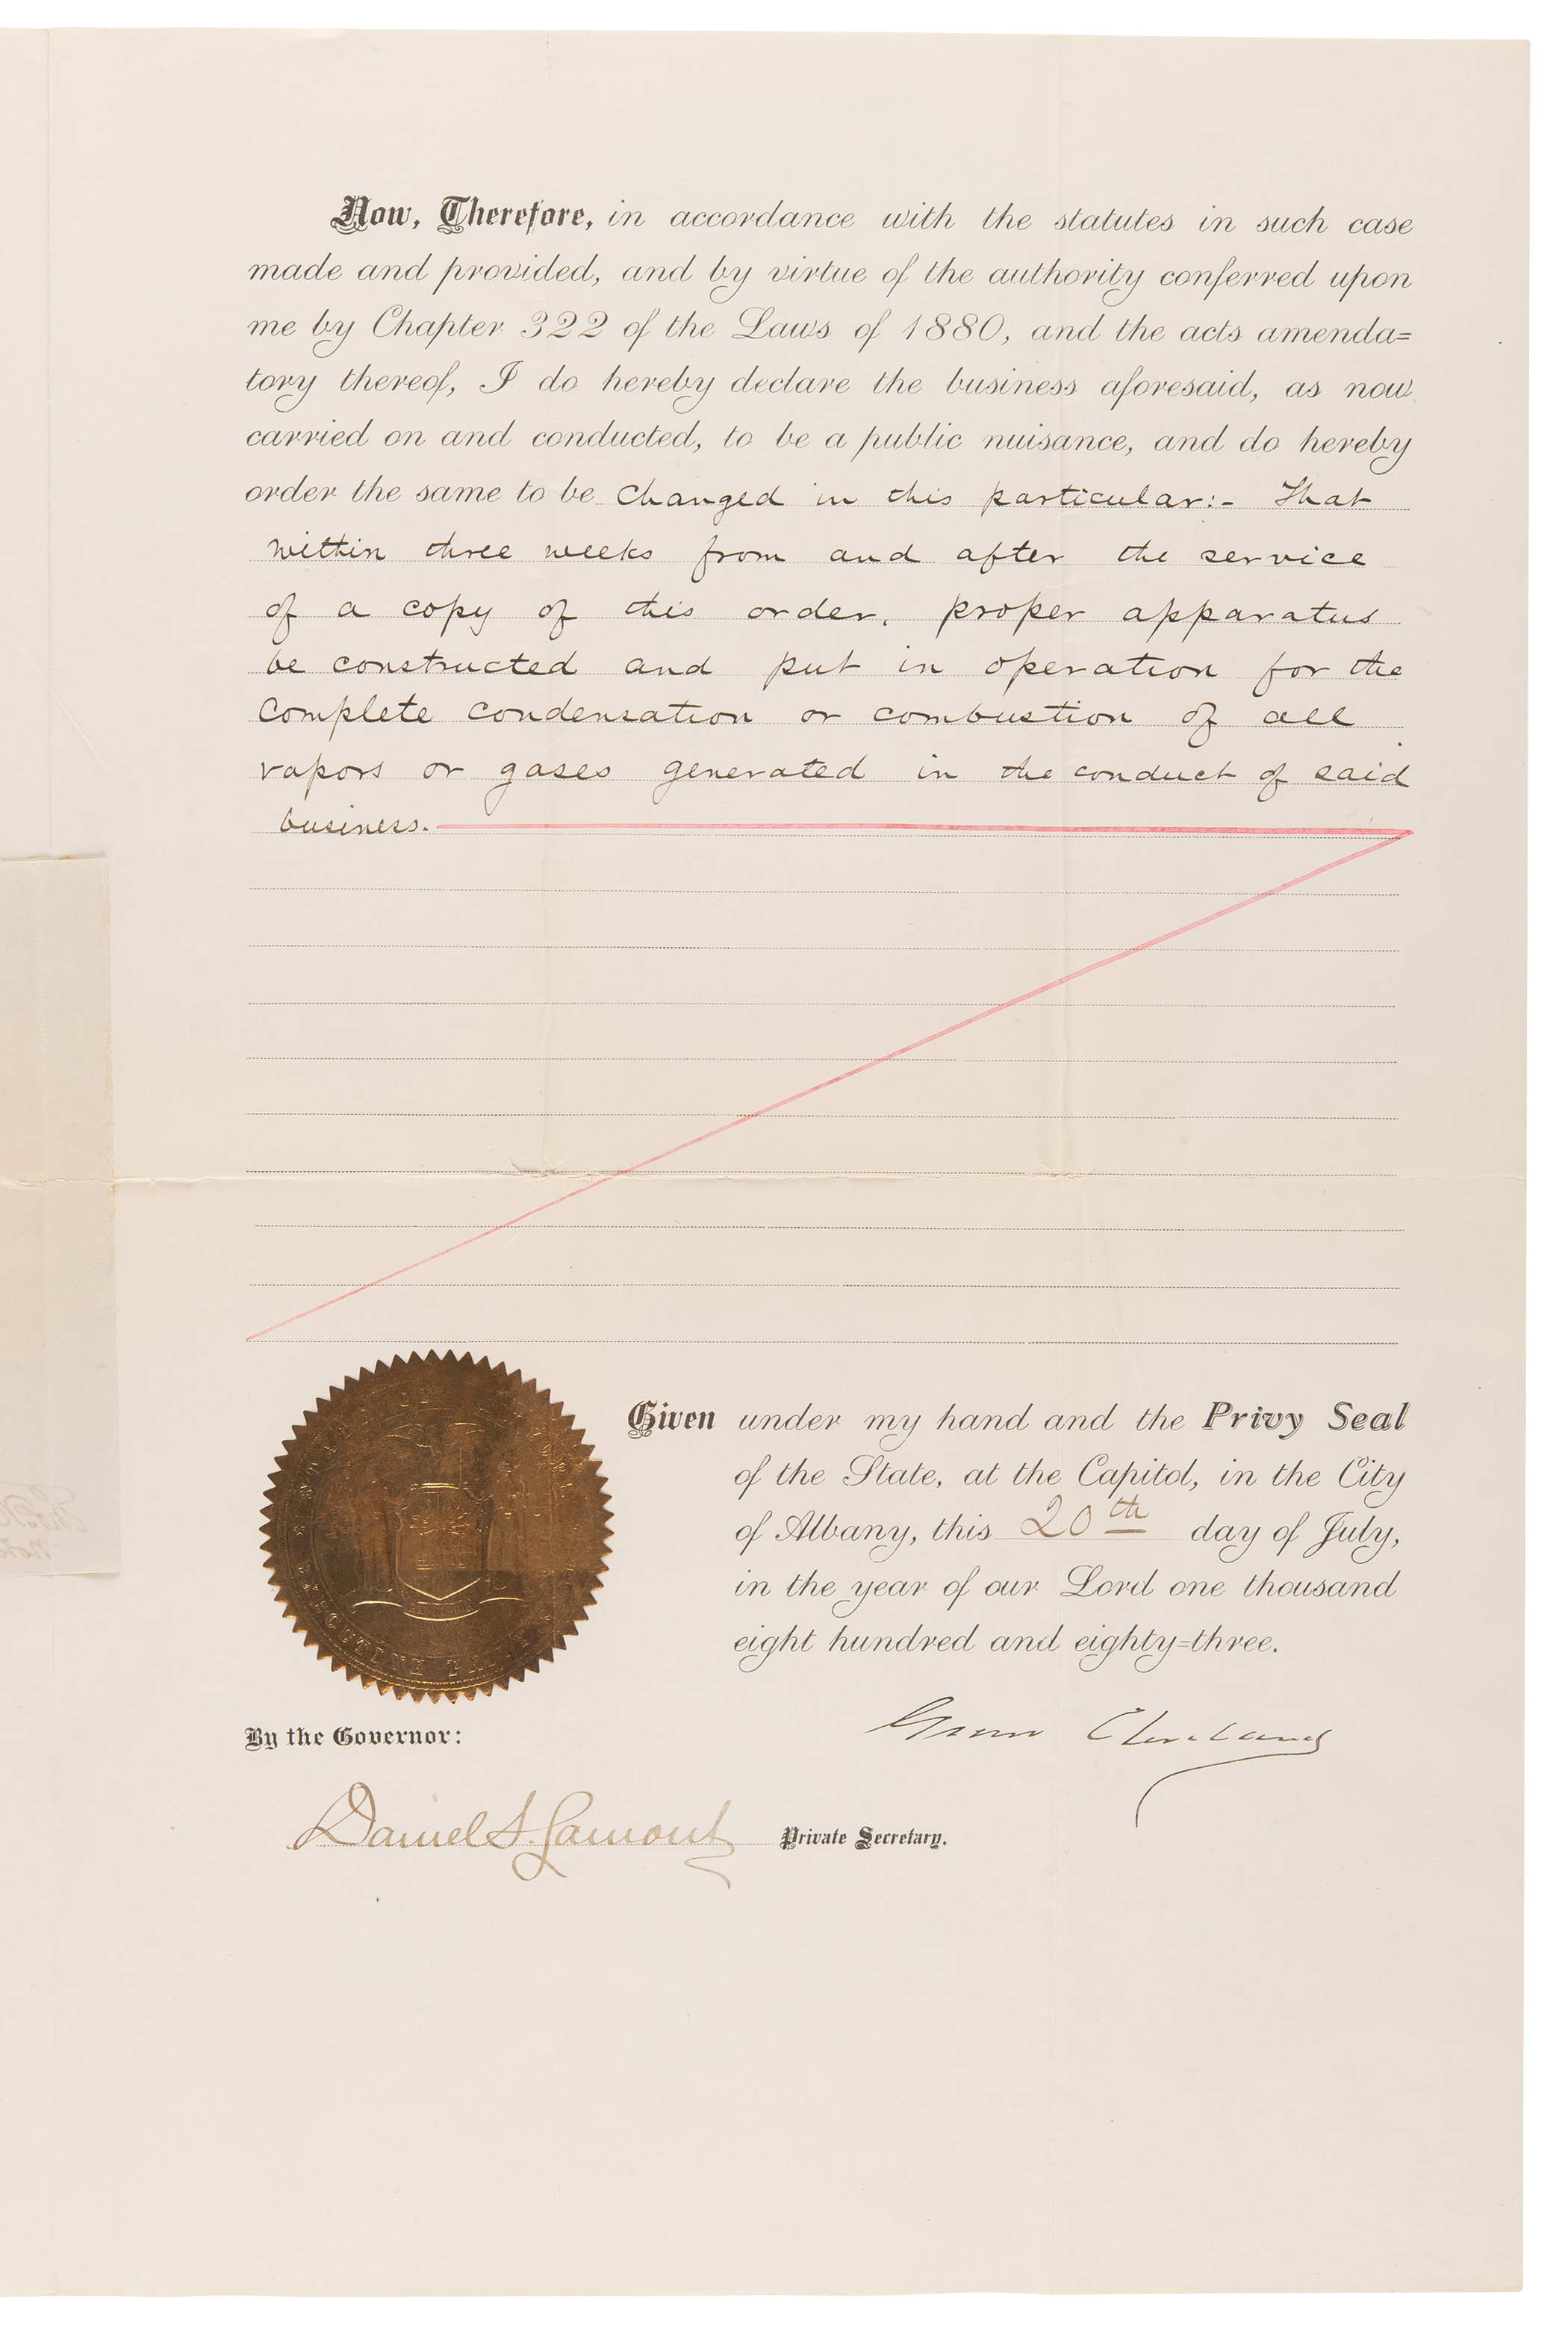 Now, Therefore, in accordance with the statutes in such case
made and provided, and by virtue of the authority conferred upon
me by Chapter 322 of the Laws of 1880, and the acts amenda=
tory thereof, I do hereby declare the business aforesaid, as now
carried on and conducted, to be a public nuisance, and do hereby
order the same to be changed in this particular:- That
within three weeks from and after the service
of a copy of this order, proper apparatus
be constructed and put in operation for the
complete condensation or combustion of all
vapors or gases generated in the conduct of said
business.
Given under my hand and the Privy Seal
of the State, at the Capitol, in the City
of Albany, this 20th day of July,
in the year of our Lord one thousand
eight hundred and eighty=three.
Grover Cleveland
By the Governor:
Daniel S. Lamont Private Secretary.